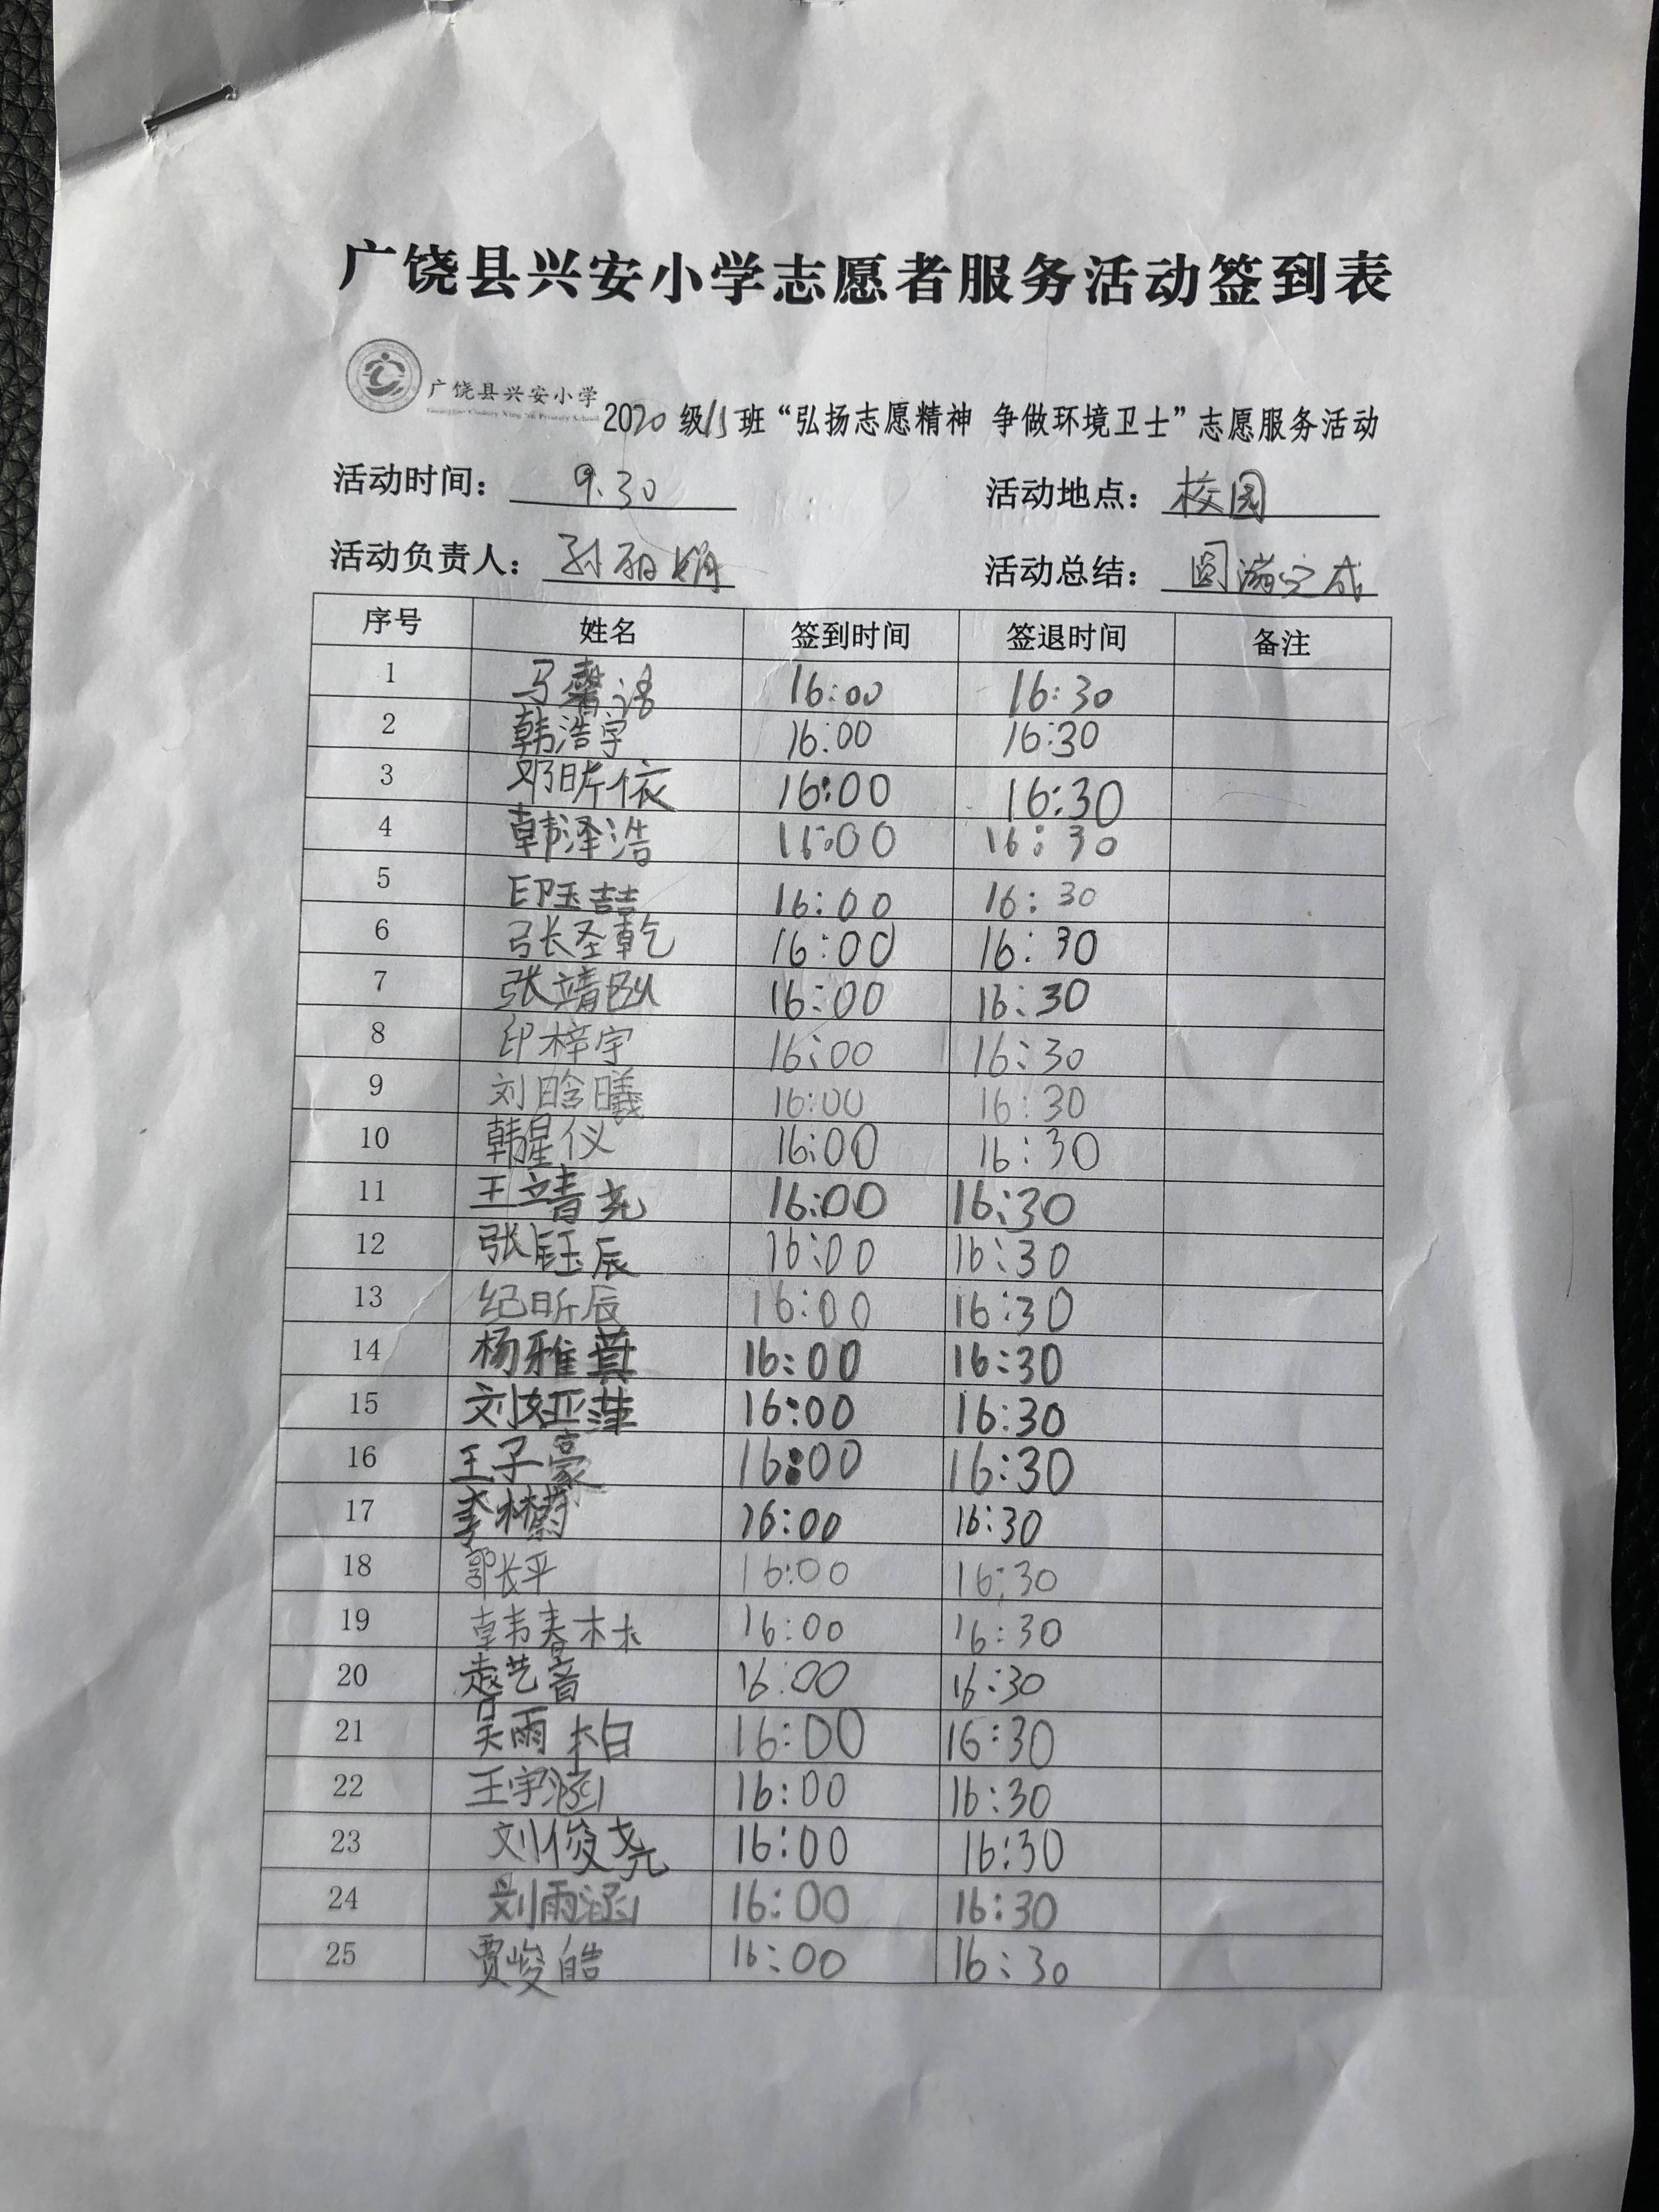 广饶县兴安小学志愿者服务活动签到表
广饶县兴安小学
2020级15班“弘扬志愿精神 争做环境卫士”志愿服务活动
活动时间： 9.30 活动地点： 校园
活动负责人： 孙丽娟 活动总结： 圆满完成
序号 姓名 签到时间 签退时间 备注
1 马馨诺 16:00 16:30
2 韩浩宇 16:00 16:30
3 邓昕依 16:00 16:30
4 韩泽浩 16:00 16:30
5 印玉喆 16:00 16:30
6 张圣乾 16:00 16:30
7 张靖 16:00 16:30
8 印梓宇 16:00 16:30
9 刘晗曦 16:00 16:30
10 韩星仪 16:00 16:30
11 王靖尧 16:00 16:30
12 张钰辰 16:00 16:30
13 纪昕辰 16:00 16:30
14 杨雅萁 16:00 16:30
15 刘娅萍 16:00 16:30
16 王子豪 16:00 16:30
17 李林蔚 16:00 16:30
18 郭长平 16:00 16:30
19 韩春林 16:00 16:30
20 赵艺音 16:00 16:30
21 吴雨柏 16:00 16:30
22 王宇涵 16:00 16:30
23 刘俊尧 16:00 16:30
24 刘雨涵 16:00 16:30
25 贾峻皓 16:00 16:30